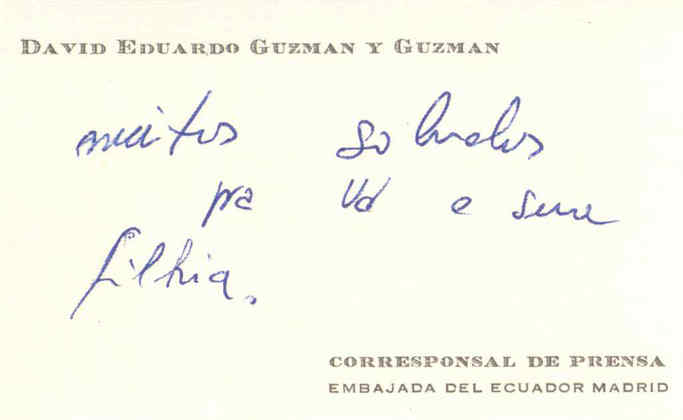 DAVID EDUARDO GUZMAN Y GUZMAN
muitos saludos
pra Vd e sua
filhia.
CORRESPONSAL DE PRENSA
EMBAJADA DEL ECUADOR MADRID